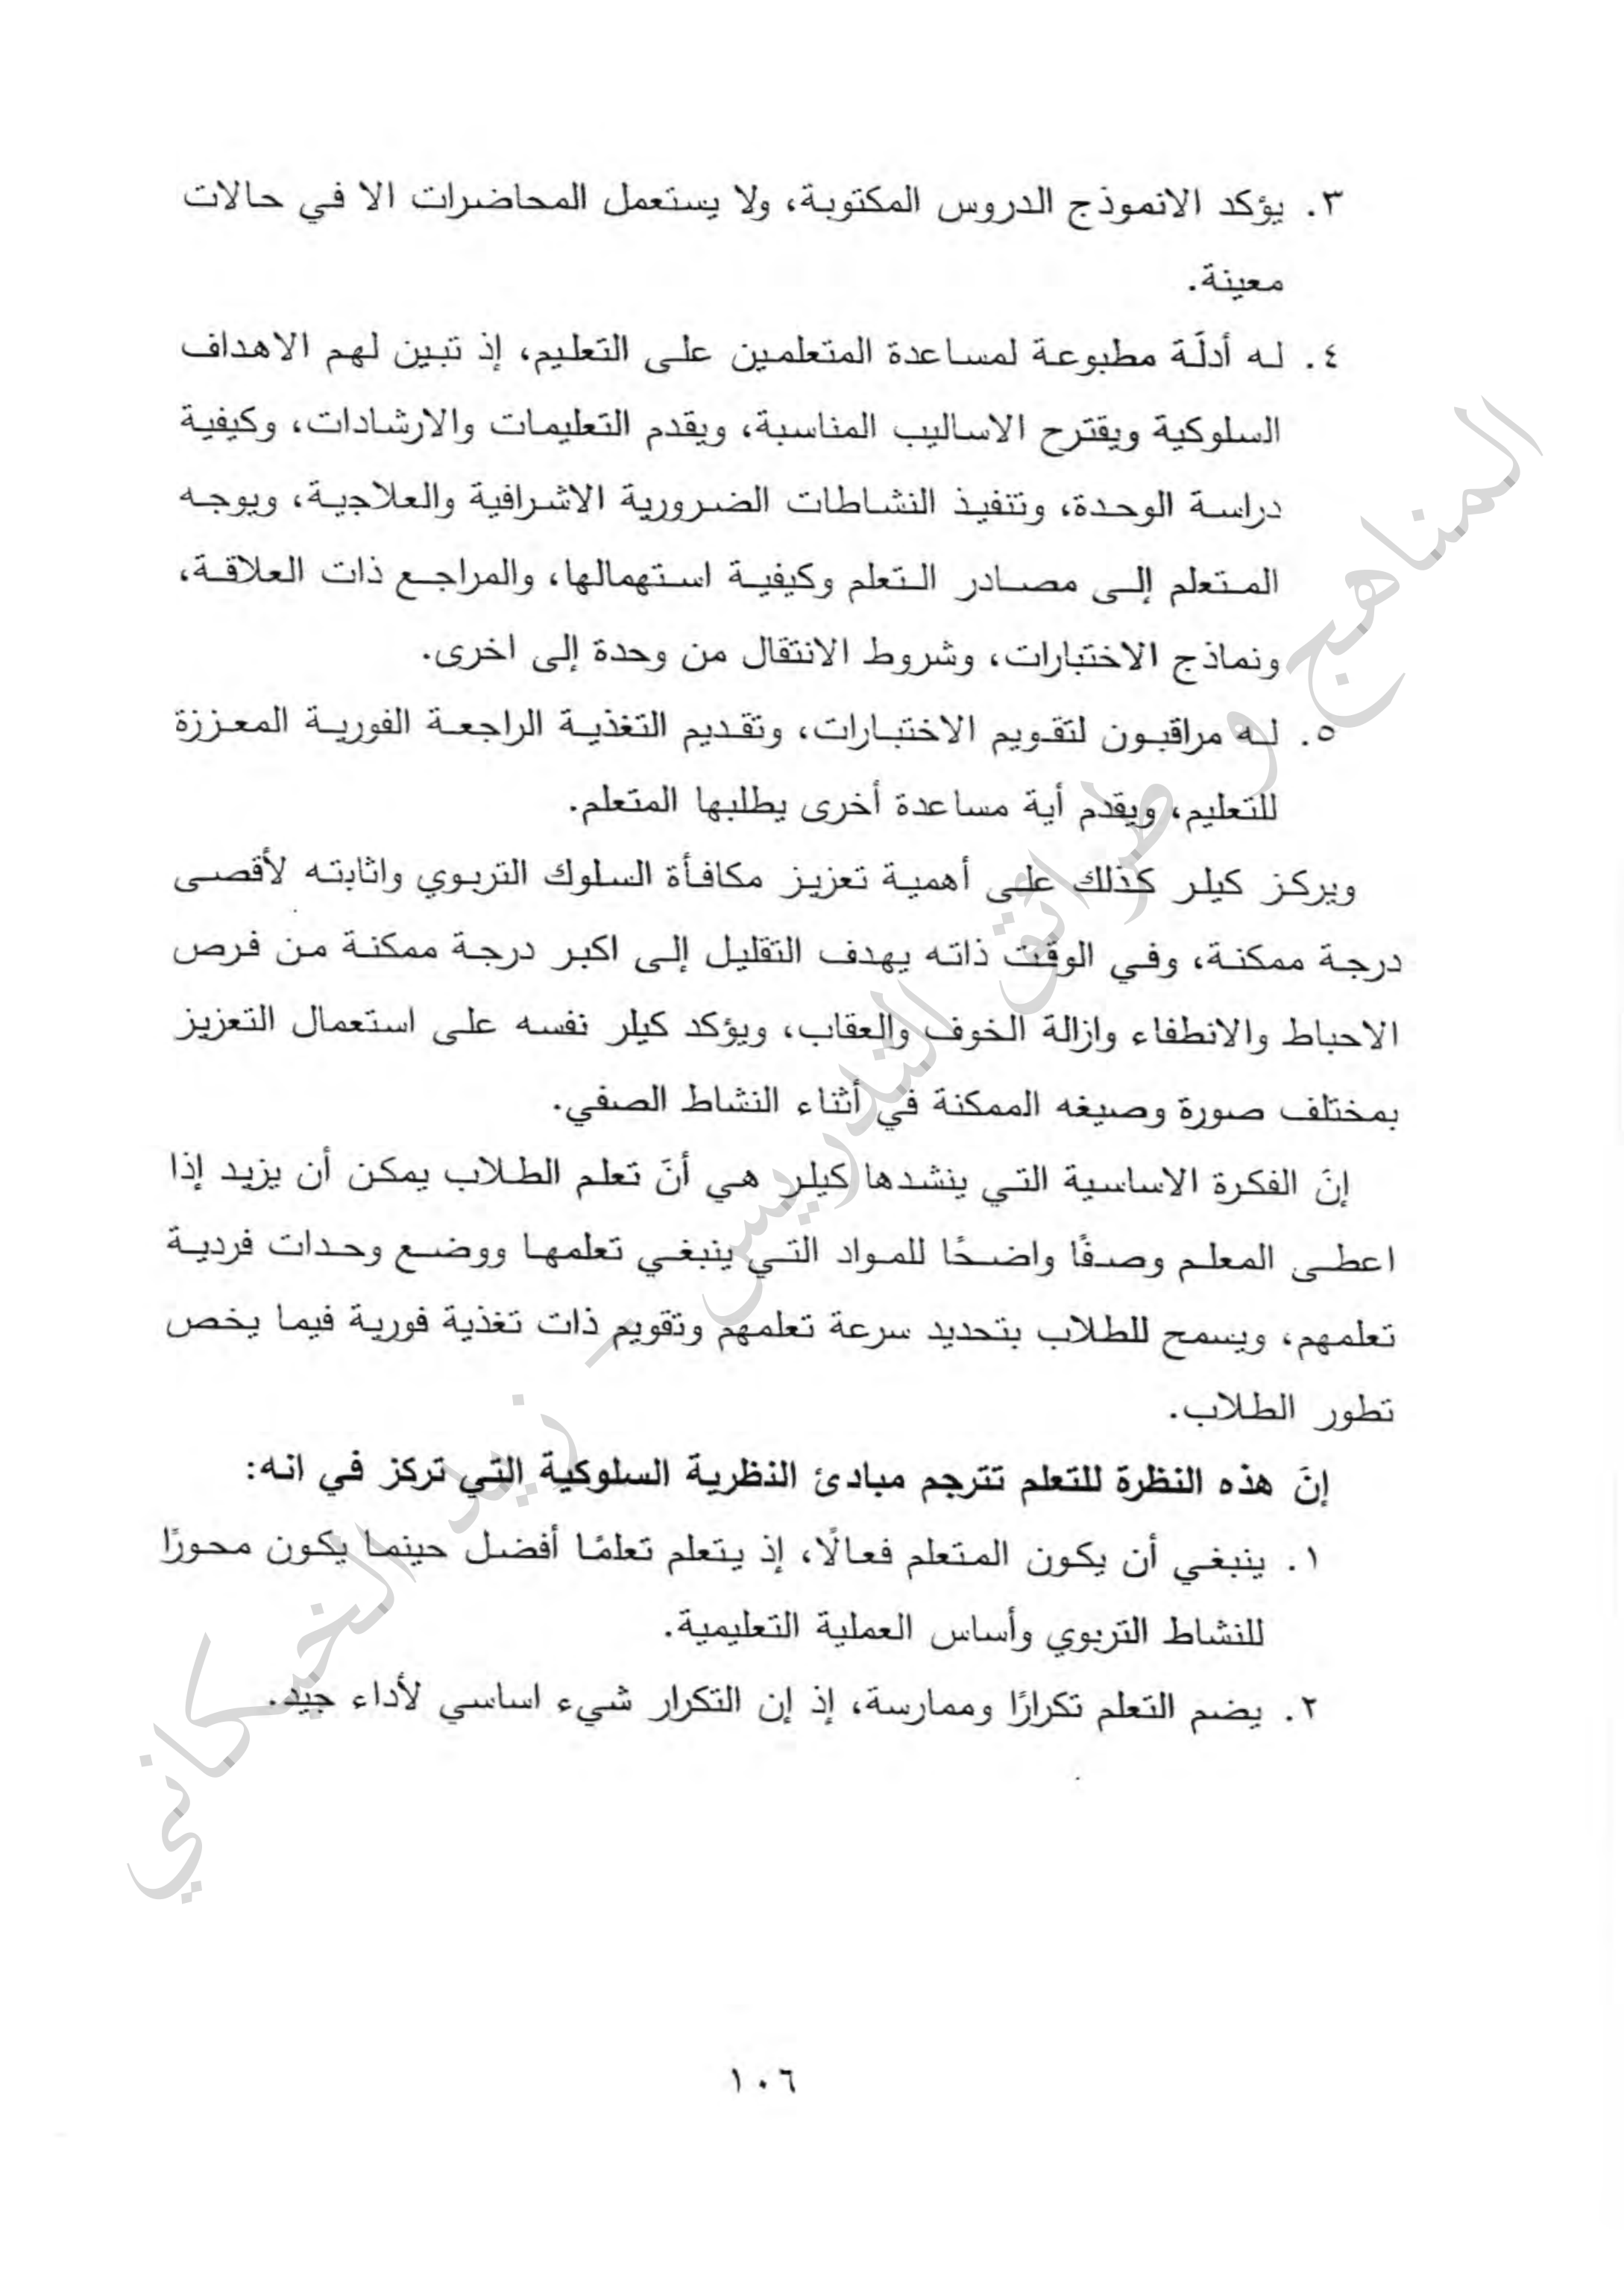 ٣. يؤكد الانموذج الدروس المكتوبة، ولا يستعمل المحاضرات الا في حالات
معينة.
٤. له أدلّة مطبوعة لمساعدة المتعلمين على التعليم، إذ تبين لهم الاهداف
السلوكية ويقترح الاساليب المناسبة، ويقدم التعليمات والارشادات، وكيفية
دراسة الوحدة، وتنفيذ النشاطات الضرورية الاشرافية والعلاجية، ويوجه
المتعلم إلى مصادر التعلم وكيفية استهمالها، والمراجع ذات العلاقة،
ونماذج الاختبارات، وشروط الانتقال من وحدة إلى اخرى.
٥. له مراقبون لتقويم الاختبارات، وتقديم التغذية الراجعة الفورية المعززة
للتعليم، ويقدم أية مساعدة أخرى يطلبها المتعلم.
ويركز كيلر كذلك على أهمية تعزيز مكافأة السلوك التربوي واثابته لأقصى
درجة ممكنة، وفي الوقت ذاته يهدف التقليل إلى اكبر درجة ممكنة من فرص
الاحباط والانطفاء وازالة الخوف والعقاب، ويؤكد كيلر نفسه على استعمال التعزيز
بمختلف صورة وصيغه الممكنة في أثناء النشاط الصفي.
إنَ الفكرة الاساسية التي ينشدها كيلر هي أنَ تعلم الطلاب يمكن أن يزيد إذا
اعطى المعلم وصفًا واضحًا للمواد التي ينبغي تعلمها ووضع وحدات فردية
تعلمهم، ويسمح للطلاب بتحديد سرعة تعلمهم وتقويم ذات تغذية فورية فيما يخص
تطور الطلاب.
إنَ هذه النظرة للتعلم تترجم مبادئ النظرية السلوكية التي تركز في انه:
١. ينبغي أن يكون المتعلم فعالًا، إذ يتعلم تعلمًا أفضل حينما يكون محورًا
للنشاط التربوي وأساس العملية التعليمية.
٢. يضم التعلم تكرارًا وممارسة، إذ إن التكرار شيء اساسي لأداء جيد.
١٠٦
المناهج و طرائق التدريس – زيد الخيكاني